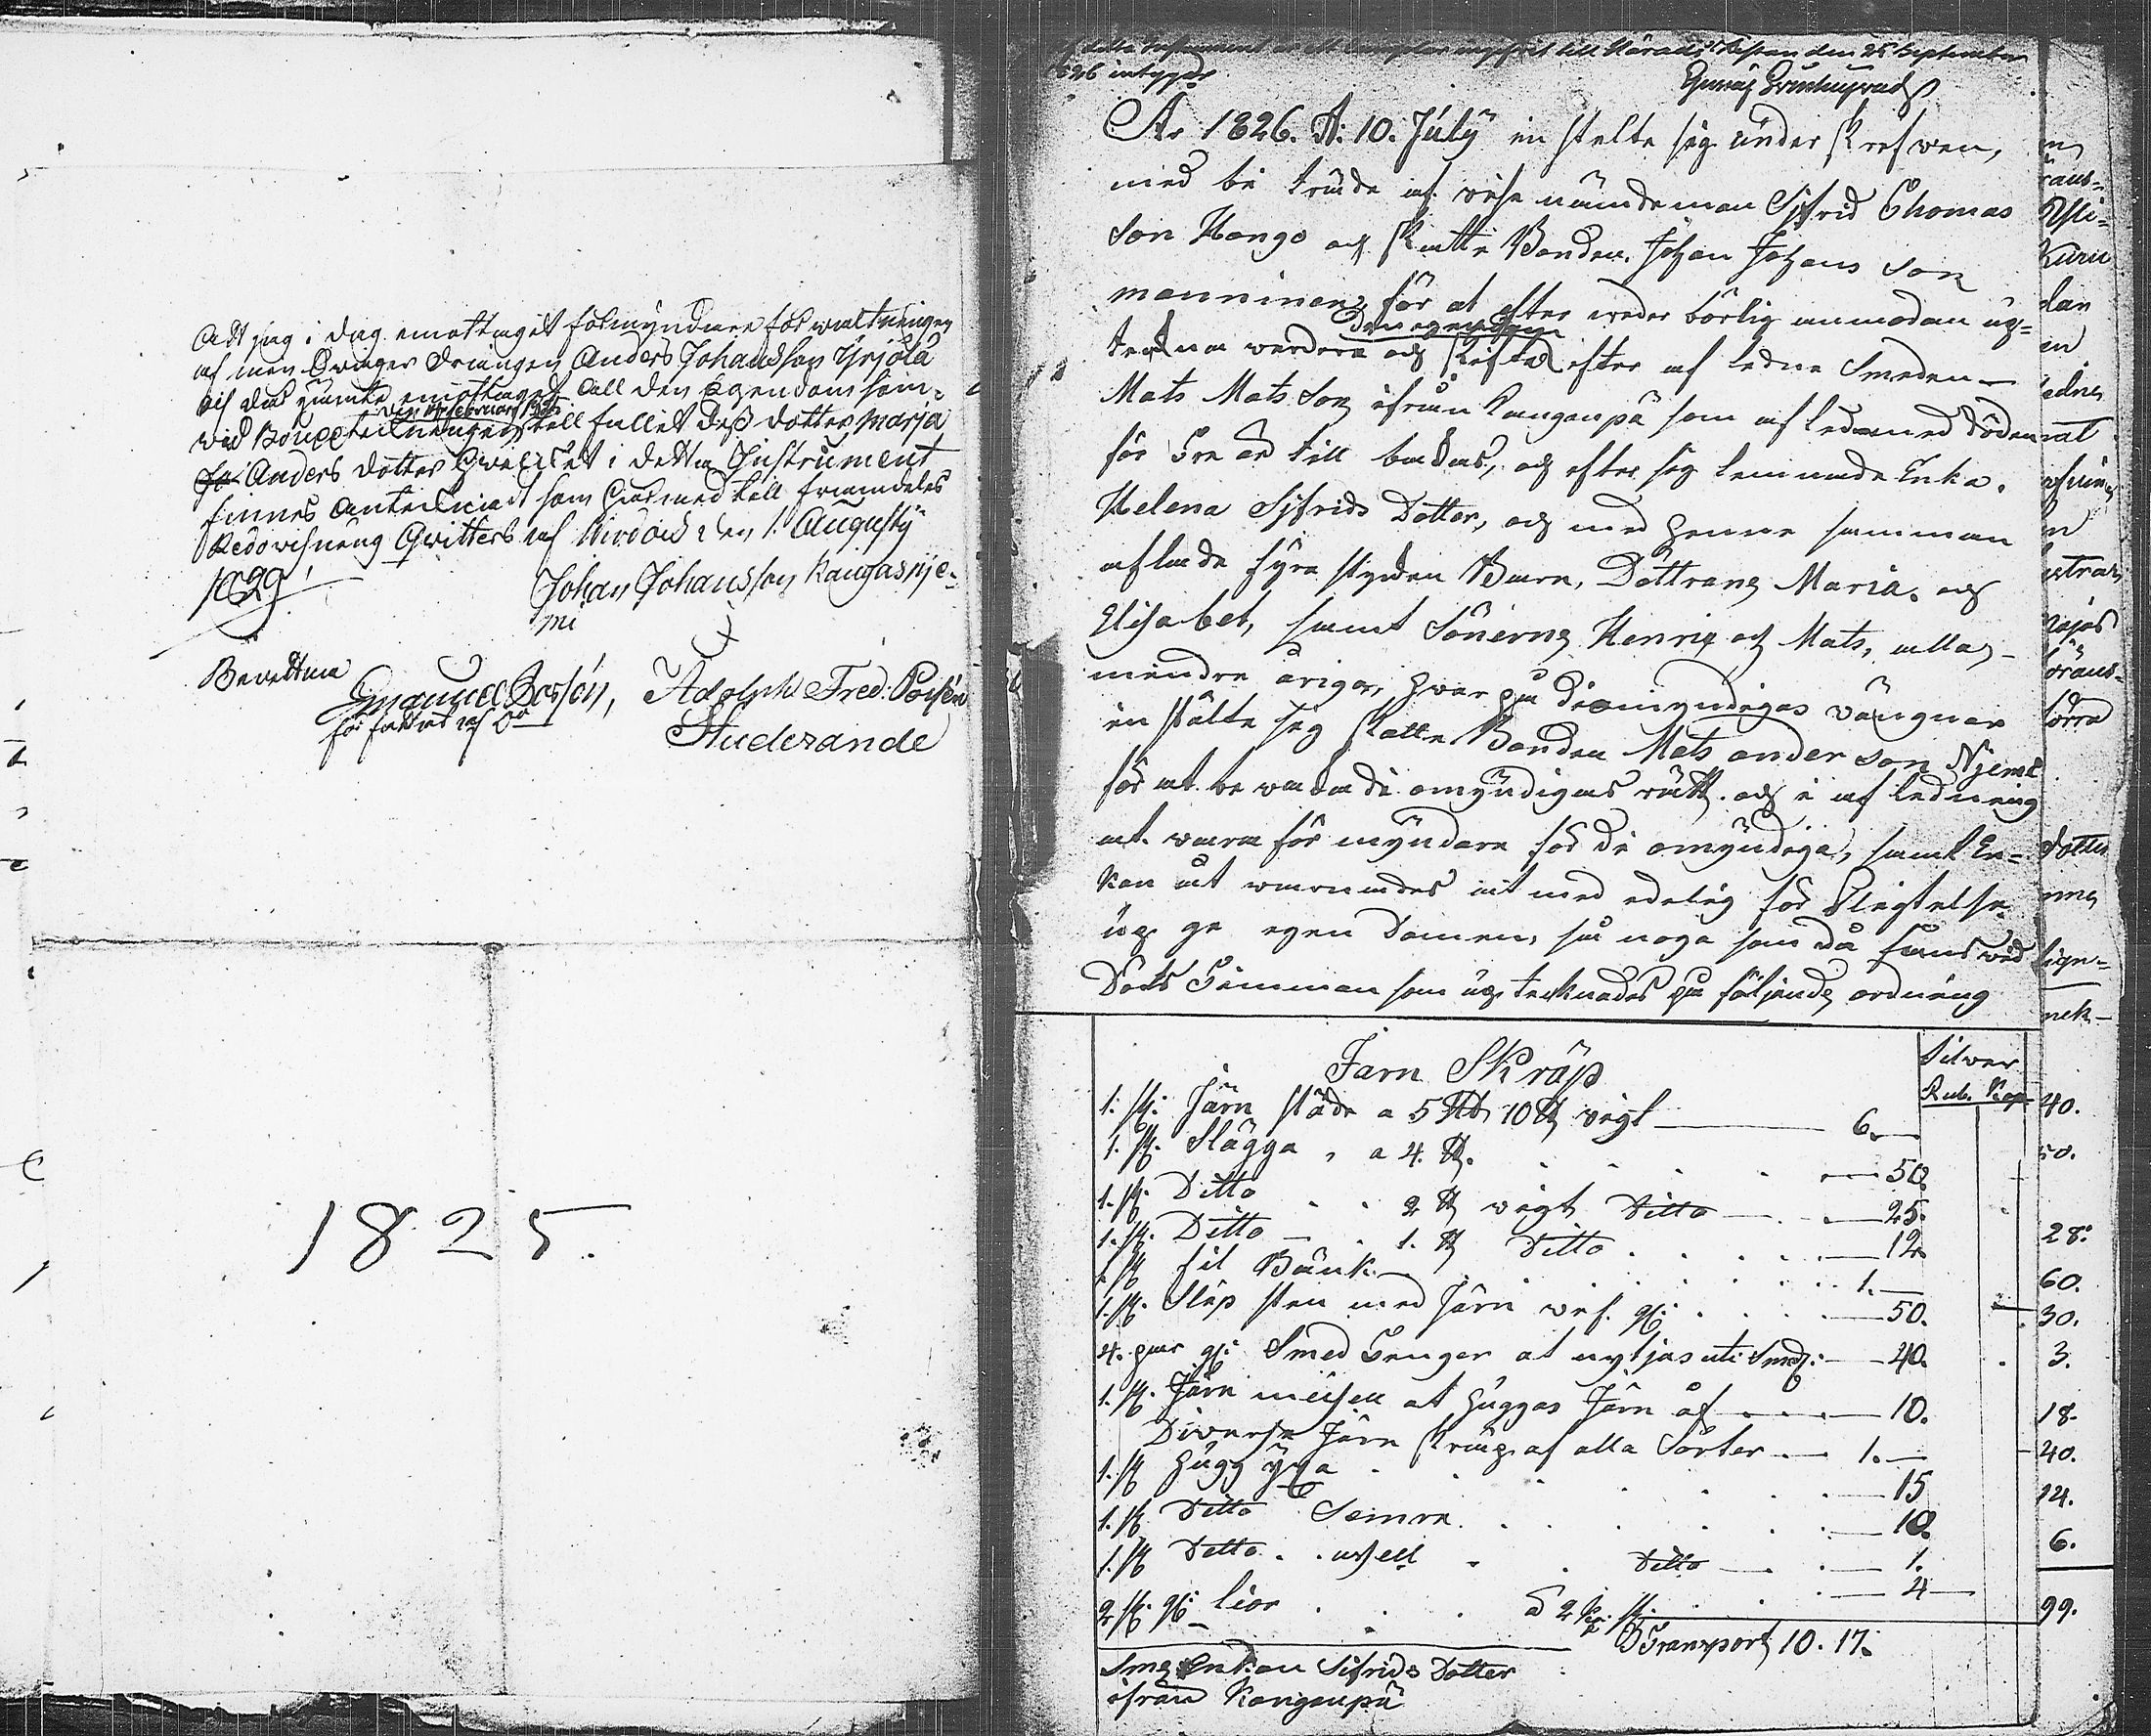 Att jag i dag emottagit förmyndare förwaltningen
af min Swåger Drängen Anders Johansson Yrjölä
och det jemte emottaget all den Egendom som
wid Bouppteilningen den 14 Februari 1825 till fallit dess dotter Marja
Anders dotter Hwilket i detta Instrument
finnes Antecknadt som härmed till framdeles
Redovisning Qvitters af Wirdois den 1. Augusty
1829.
Johan Johansson Kangasnje-
mi
Bevittna
Emanuel Bosén, Adolph Fred:
författat af Do Studerande
1825.
detta Instrument är ett Exemplar ingifvit till Härads Kistan den 25 September
1826 intygar
År 1826. D: 10. July in stelte sig under skrefwen,
med bi träde af wise nämndeman Sifrid Thomas
Son Hongo och Skatte Bonden Johan Johans Son
Manninen, för at efter weder börlig anmodan up-
tekna werdera och skifta egendomen efter af ledne Smeden
Mats Mats Son ifrån Kangenpä som af led med döden
för Tre år till bakas, och efter sig lemnade Enka.
Helena Sifrids Dotter, och med henne samman
aflade fyra stycken Barn, Döttrang Maria. och
Elisabet, samt Sönerne Henrig och Mats, alla
mindre åriga, hwar på di omyndigas wängnar
in stälte sig Skatte Bonden Mats ander son Njemi
för at be waka di omyndigas rätt. och i af ledning
at. wara för myndare för di omyndiga, samt En-
kan åt warnades at med edelig för Pligtelse
up ge egen Domen, så noga som då fans wid
Döds Timman som up teknades på följande ordning
Jarn Skräp
Silwer
Rub. Kop.
1. st: Järn städe a 5 L℔ 10 ℔ wigt 6.
1. st. Slägga, a 4. ℔. 50.
1. st. Ditto 2 ℔ wigt Ditto 25.
1. st. Ditto 1. ℔ Ditto 12.
1 st fil Bänk 1.
1. st. Slip sten med Järn wef. 50.
4. par gl: Smed Tenger at nytjas uti Smed: 40.
1. st. Järn mejsell at huggas Järn af 10.
Diverse Järn skräp af alla Sorter 1.
1. st hugg yxa 15
1. st Ditto Semre 10.
1. st Ditto Ditto 1.
2 st. gl: lior à 2 kp. st. 4
Transport 10. 17.
Enkan Sifrids Dotter
ifrån Kangenpä
40.
50.
28.
60.
30.
3.
18.
40.
14.
6.
99.